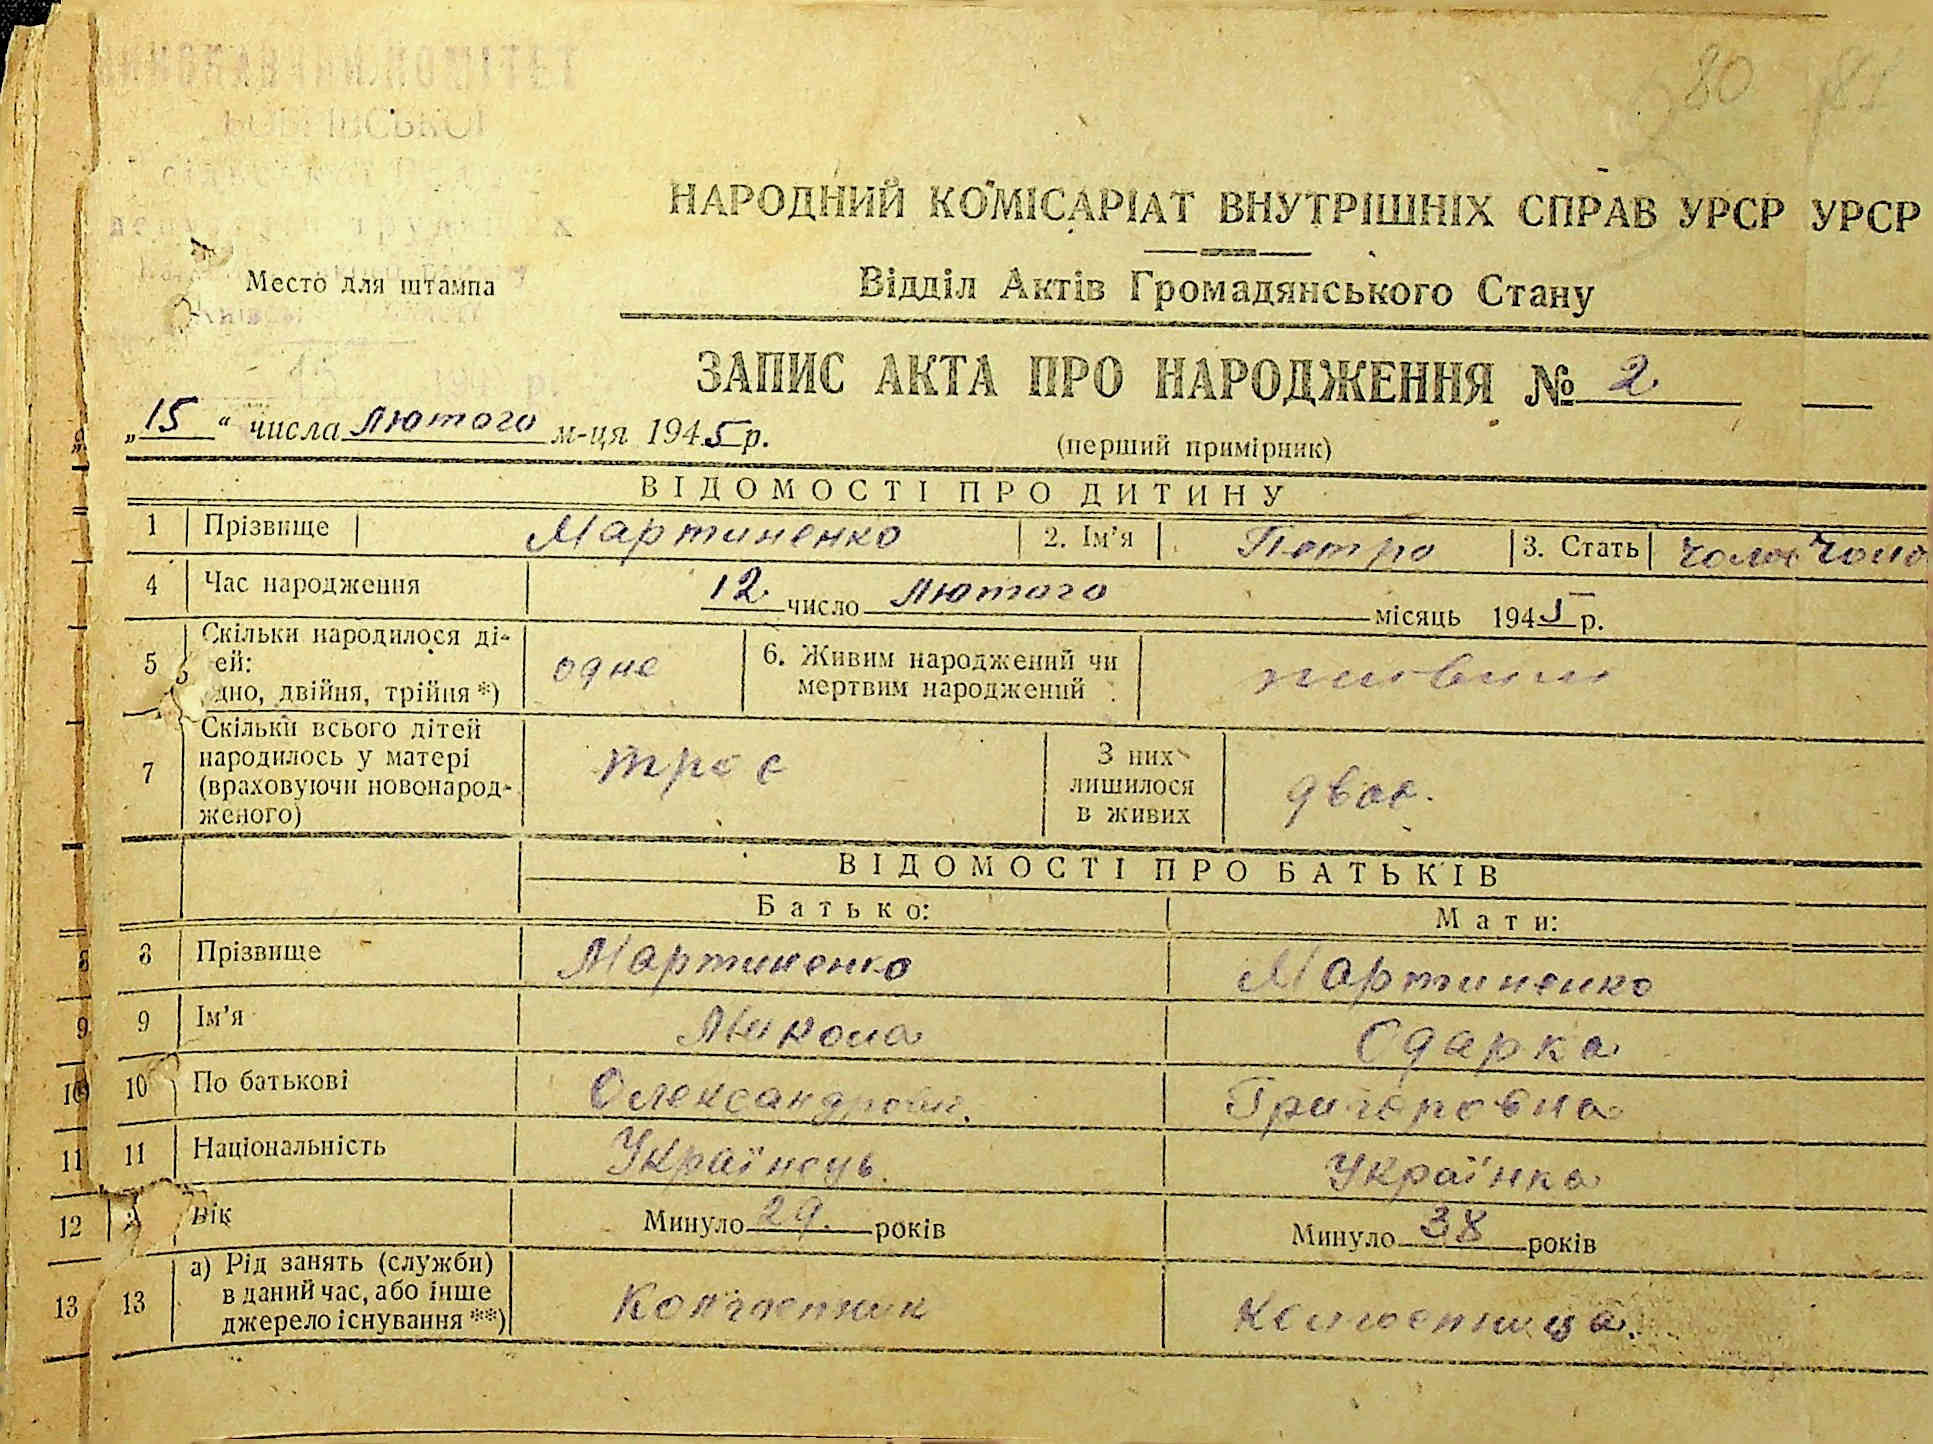 ВИКОНАВЧИЙ КОМІТЕТ
80 81
НАРОДНИЙ КОМІСАРІАТ ВНУТРІШНІХ СПРАВ УРСР УРСР
Место для штампа
Відділ Актів Громадянського Стану
15 194 р.
ЗАПИС АКТА ПРО НАРОДЖЕННЯ № 2
„15“ числа лютого м-ця 1945 р.
(перший примірник)
ВІДОМОСТІ ПРО ДИТИНУ
1 Прізвище Мартиненко 2. Ім'я Петро 3. Стать чолов чоло
4 Час народження 12 число лютого місяць 1945 р.
5 Скільки народилося ді-
ей:
дно, двійня, трійня*) одне 6. Живим народжений чи
мертвим народжений живим
7 Скільки всього дітей
народилось у матері
(враховуючи новонарод-
женого) троє З них
лишилося
в живих двоє.
ВІДОМОСТІ ПРО БАТЬКІВ
Батько: Мати:
8 8 Прізвище Мартиненко Мартиненко
9 9 Ім'я Микола Одарка
10 10 По батькові Олександрович. Григоровна
11 11 Національність Українець. Українка
12 Вік Минуло 29. років Минуло 38 років
13 13 а) Рід занять (служби)
в даний час, або інше
джерело існування**) Колгоспник Колгоспниця.